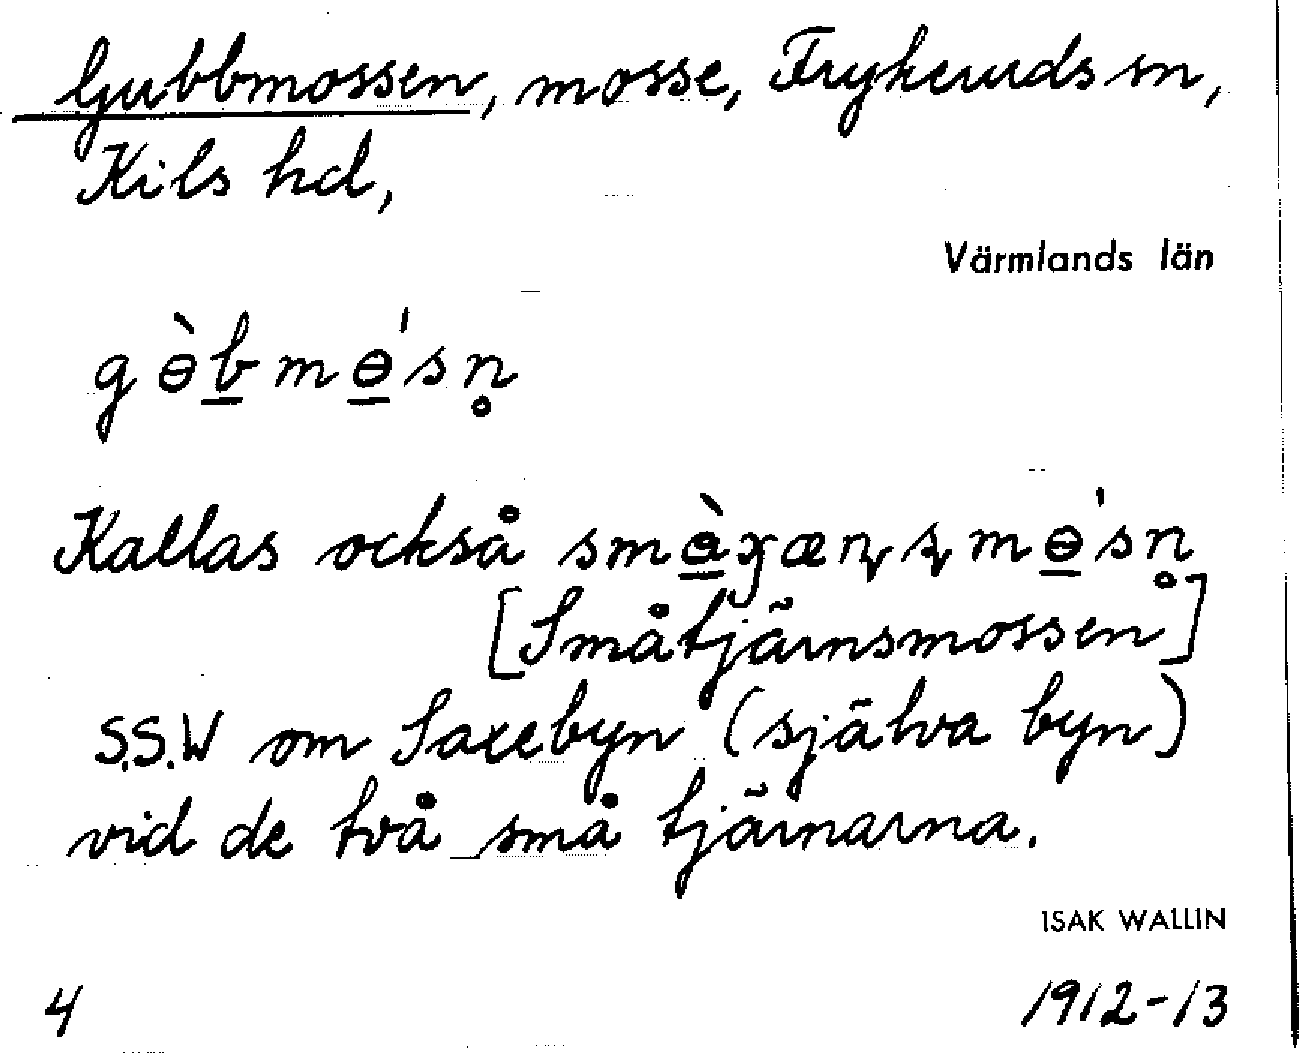 Gubbmossen, mosse, Frykeruds sn,
Kils hd,
Värmlands län
gɵ̀b̲mɵ̲'sn̥
Kallas också småtjärnsmossen smɵ̲̀ɣæɳʂmɵ̲'sn̥
[Småtjärnsmossen]
S.S.W om Saxebyn (själva byn)
vid de två små tjärnarna.
ISAK WALLIN
4 1912-13